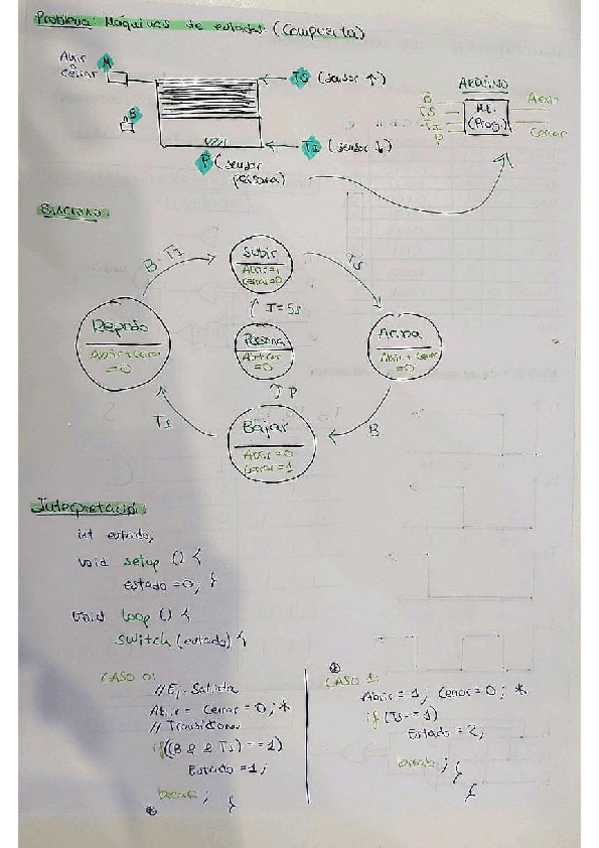 Problema: Máquinas de estados (Compuerta)
Abrir
o
cerrar
M
TS (sensor ↑)
S
TI (sensor ↓)
P (sensor
persona)
ARDUINO
B
TS
TI
P
M.E.
(Prog.)
Abrir
Cerrar
Síncrono:
B · TI
Subir
Abrir=1
Cerrar=0
TS
T=5s
Reposo
Abrir+Cerrar
=0
Persona
=0
Arriba
Abrir + Cerrar
=0
P
TI
Bajar
Abrir=0
Cerrar=1
B
Interpretació:
int estado;
void setup () {
estado = 0; }
void loop () {
switch (estado) {
CASO 0:
// E/. Salida
Abrir = Cerrar = 0; *
// Transiciones
if((B & & TI) == 1)
Estado = 1;
break; }
CASO 1:
Abrir = 1; Cerrar = 0; *
if (TS == 1)
Estado = 2;
break; }
}